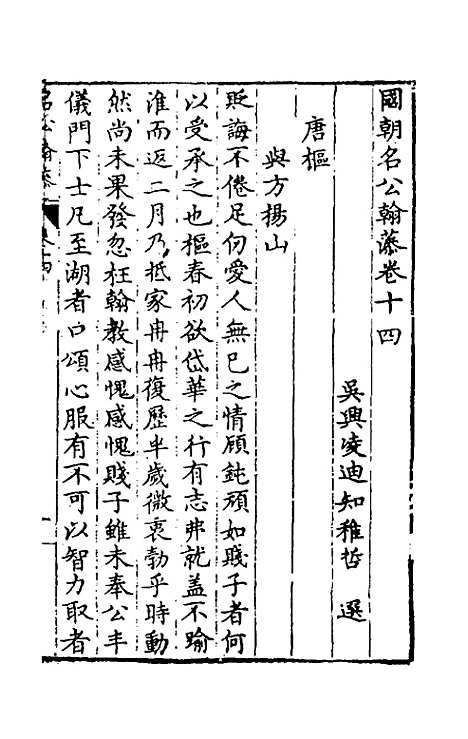 國朝名公翰藻卷十四
吳興凌迪知稚哲 選
唐樞
與方揚山
貶誨不倦足仞愛人無已之情顧鈍頑如賤子者何
以受承之也樞春初欲岱華之行有志弗就盖不踰
淮而返二月乃抵家冉冉復歷半歲微衷勃乎時動
然尚未果發忽枉翰教感愧感愧賤子雖未奉公丰
儀門下士凡至湖者口頌心服有不可以智力取者
名公翰藻 卷十四